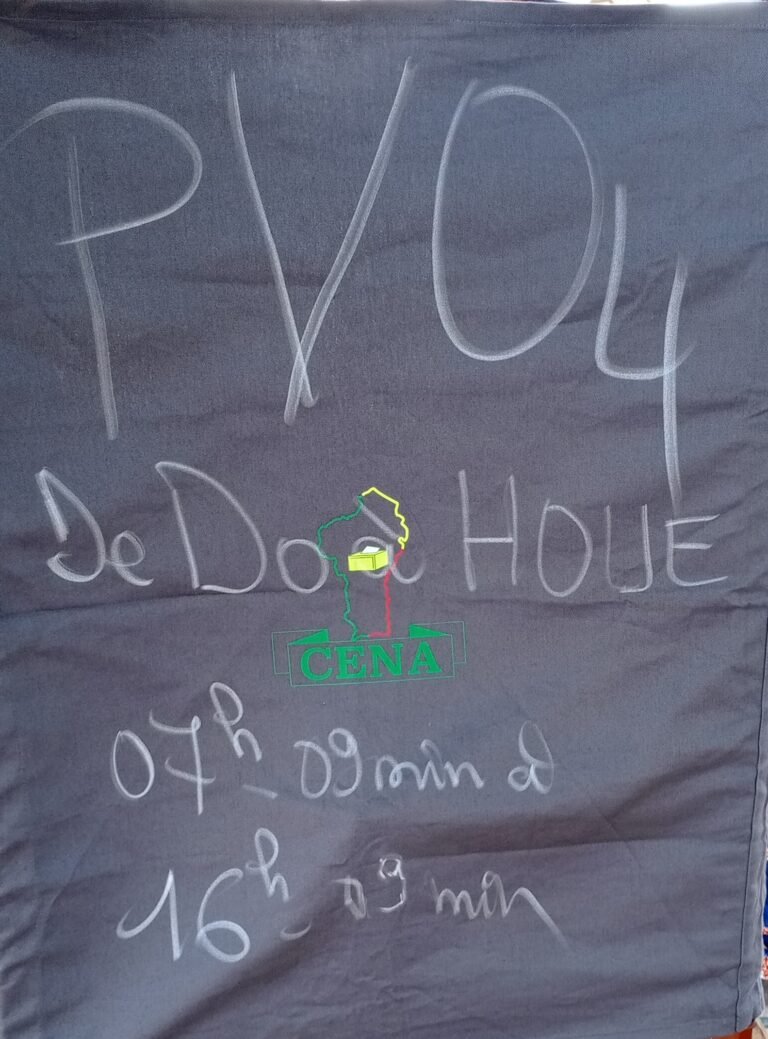 PV04
De Do à HOUE
CENA
07h - 09min à
16h - 09 min